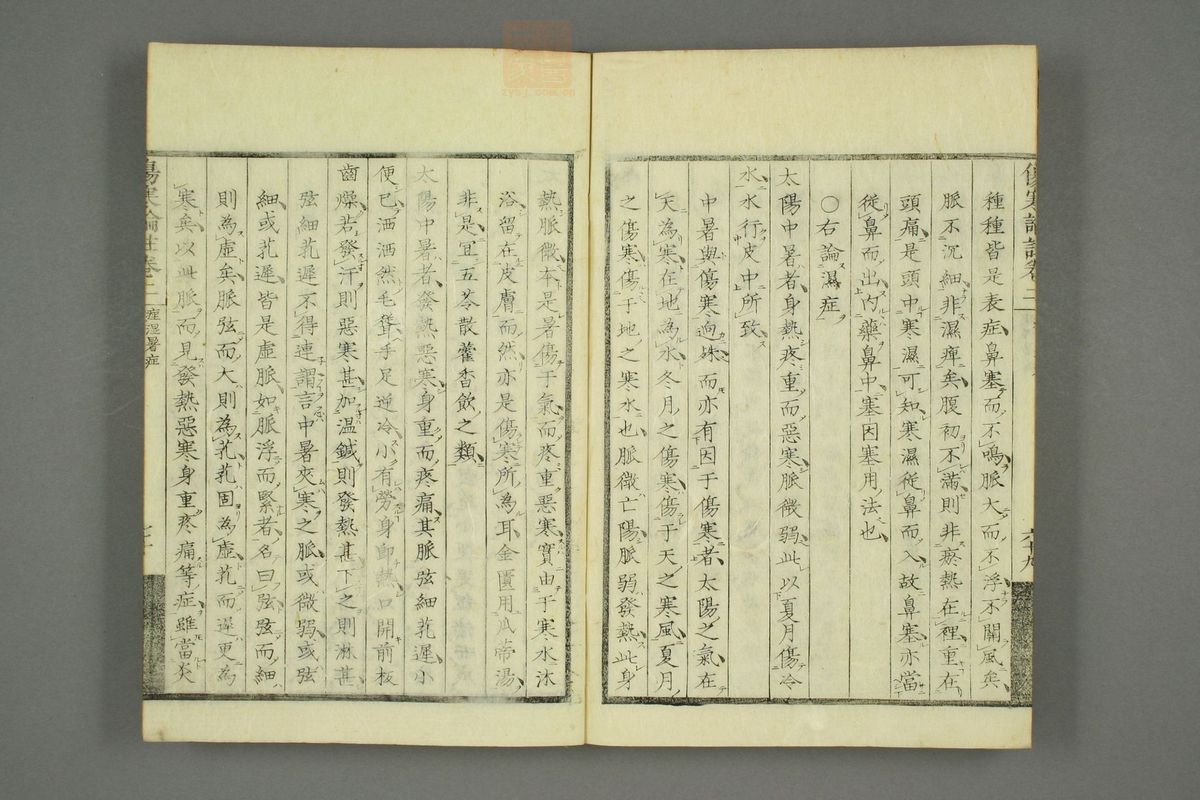 種種皆是表症鼻塞而不鳴脈大而不浮不關風矣
脈不沉細非濕痺矣腹初不滿則非瘀熱在裡重在
頭痛是頭中寒濕可知寒濕從鼻而入故鼻塞亦當
從鼻而出內藥鼻中塞因塞用法也
〇右論濕症
太陽中暑者身熱疼重而惡寒脈微弱此以夏月傷冷
水水行皮中所致
中暑與傷寒迥殊而亦有因于傷寒者太陽之氣在
天為寒在地為水冬月之傷寒傷于天之寒風夏月
之傷寒傷于地之寒水也脈微亡陽脈弱發熱此身
六十九
熱脈微本是暑傷于氣而疼重惡寒實由于寒水沐
浴留在皮膚而然亦是傷寒所為耳金匱用瓜蒂湯
非是宜五苓散藿香飲之類
太陽中暑者發熱惡寒身重而疼痛其脈弦細芤遲小
便已洒洒然毛聳手足逆冷小有勞身即熱口開前板
齒燥若發汗則惡寒甚加温鍼則發熱甚下之則淋甚
弦細芤遲不得連謂言中暑夾寒之脈或微弱或弦
細或芤遲皆是虛脈如脈浮而緊者名曰弦弦而細
則為虛矣脈弦而大則為芤芤固為虛芤而遲更為
寒矣以此脈而見發熱惡寒身重疼痛等症雖當炎
傷寒論註卷二
痙濕暑症
zysj.com.cn